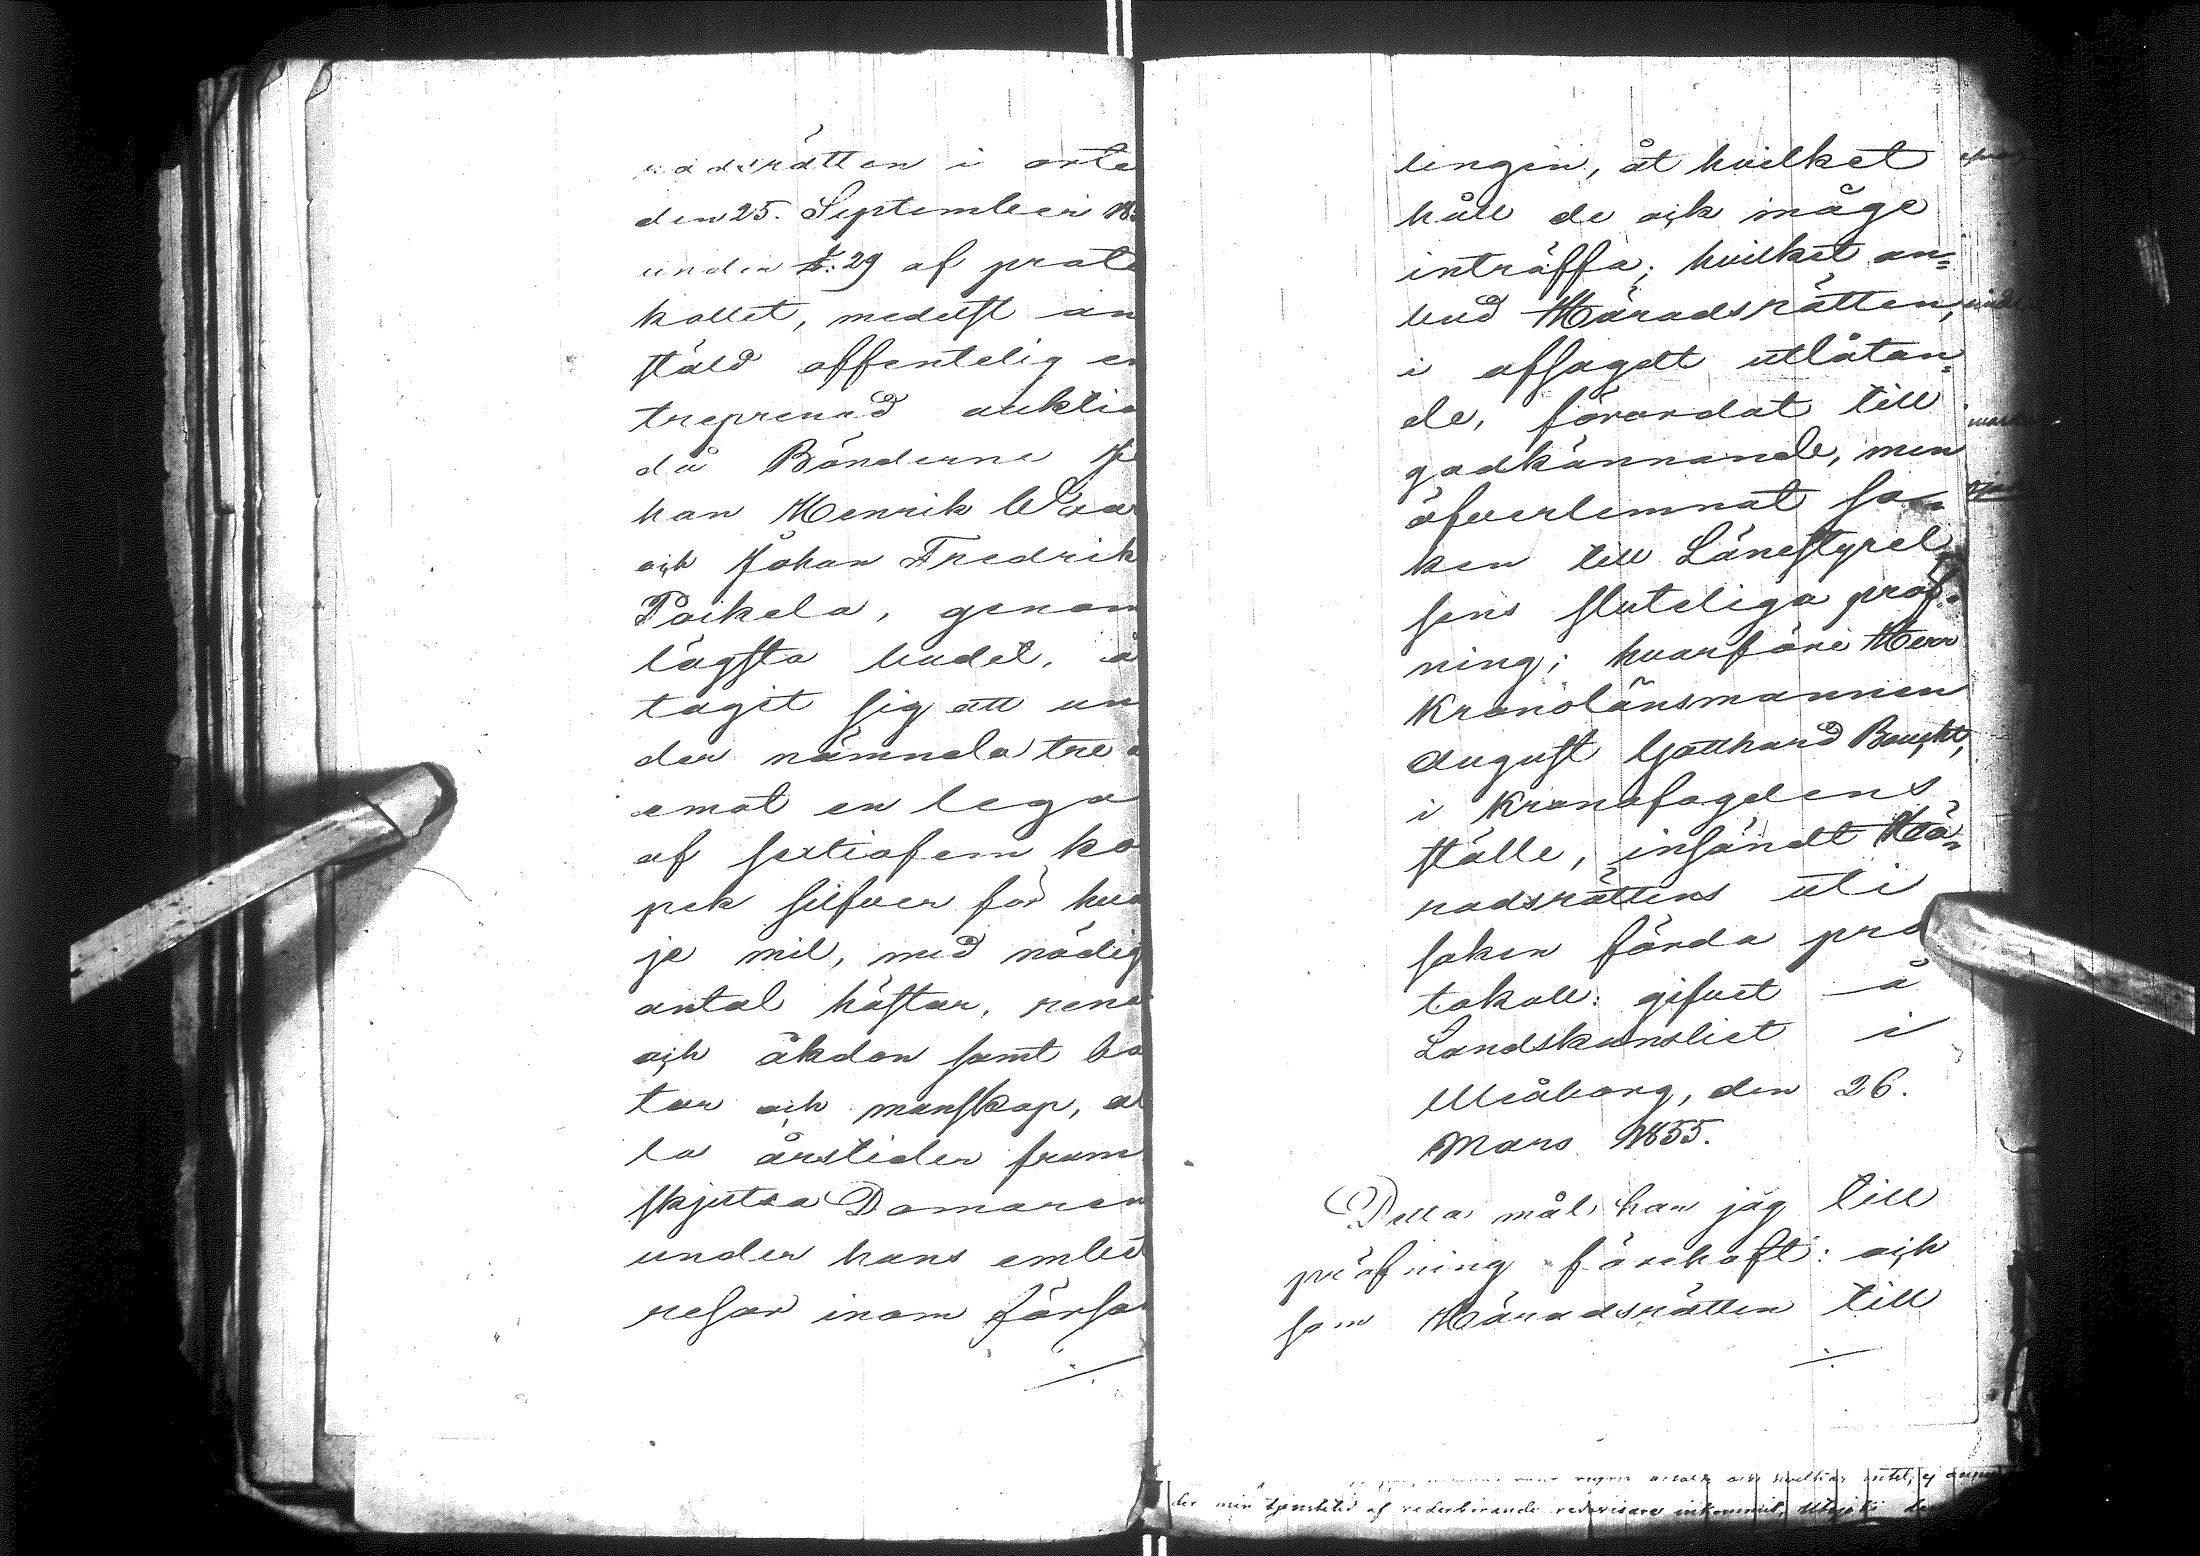 radsrätten i orte
den 25. September 18
under §: 29 af proto
kollet, medelst an
stäld offentelig en
treprenad auktio
då Bönderne Jo
han Henrik
och Johan Fredrik
Poikela, genom
lägsta budet, å
tagit sig att un
der nämnda tre å
emot en lega
af sextiofem ko
pek silfver för hva
je mil, med nödig
antal hästar, rena
och åkdon samt bå
tar och manskap, al
la årstider fram
skjutsa Domaren
under hans embet
resor inom försa
lingen, åt hvilket
håll de ock måge
inträffa; hvilket an=
bud Häradsrätten,
i afsagdt utlåtan=
de, förordat till
godkännande, men
öfverlemnat sa=
ken till Länestyrel
sens sluteliga pröf=
ning; hvarföre Herr
Kronolänsmannen
August Gotthard Baucht,
i Kronofogdens
ställe, insändt Hä=
radsrättens uti
saken förda pro
tokoll: gifvet å
Landskansliet i
Uleåborg, den 26.
Mars 1855.
Detta mål har jag till
pröfning förehaft: och
som Häradsrätten till
der min tjenstetid af vederbörande redovisare inkommit,